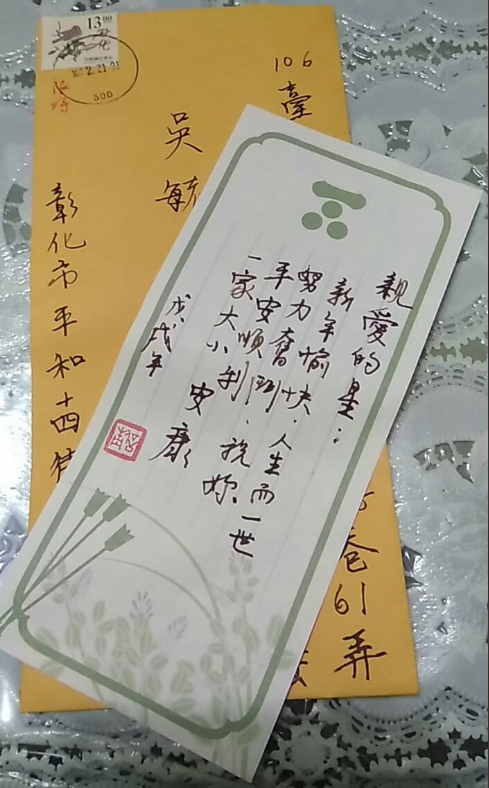 親愛的星：
新年愉快、人生而一世
努力奮鬥、祝妳
平安順利、
一家大小安康
戊戌年
106
臺
吳
毓
巷61弄
彰化市平和十四街
13.00
500